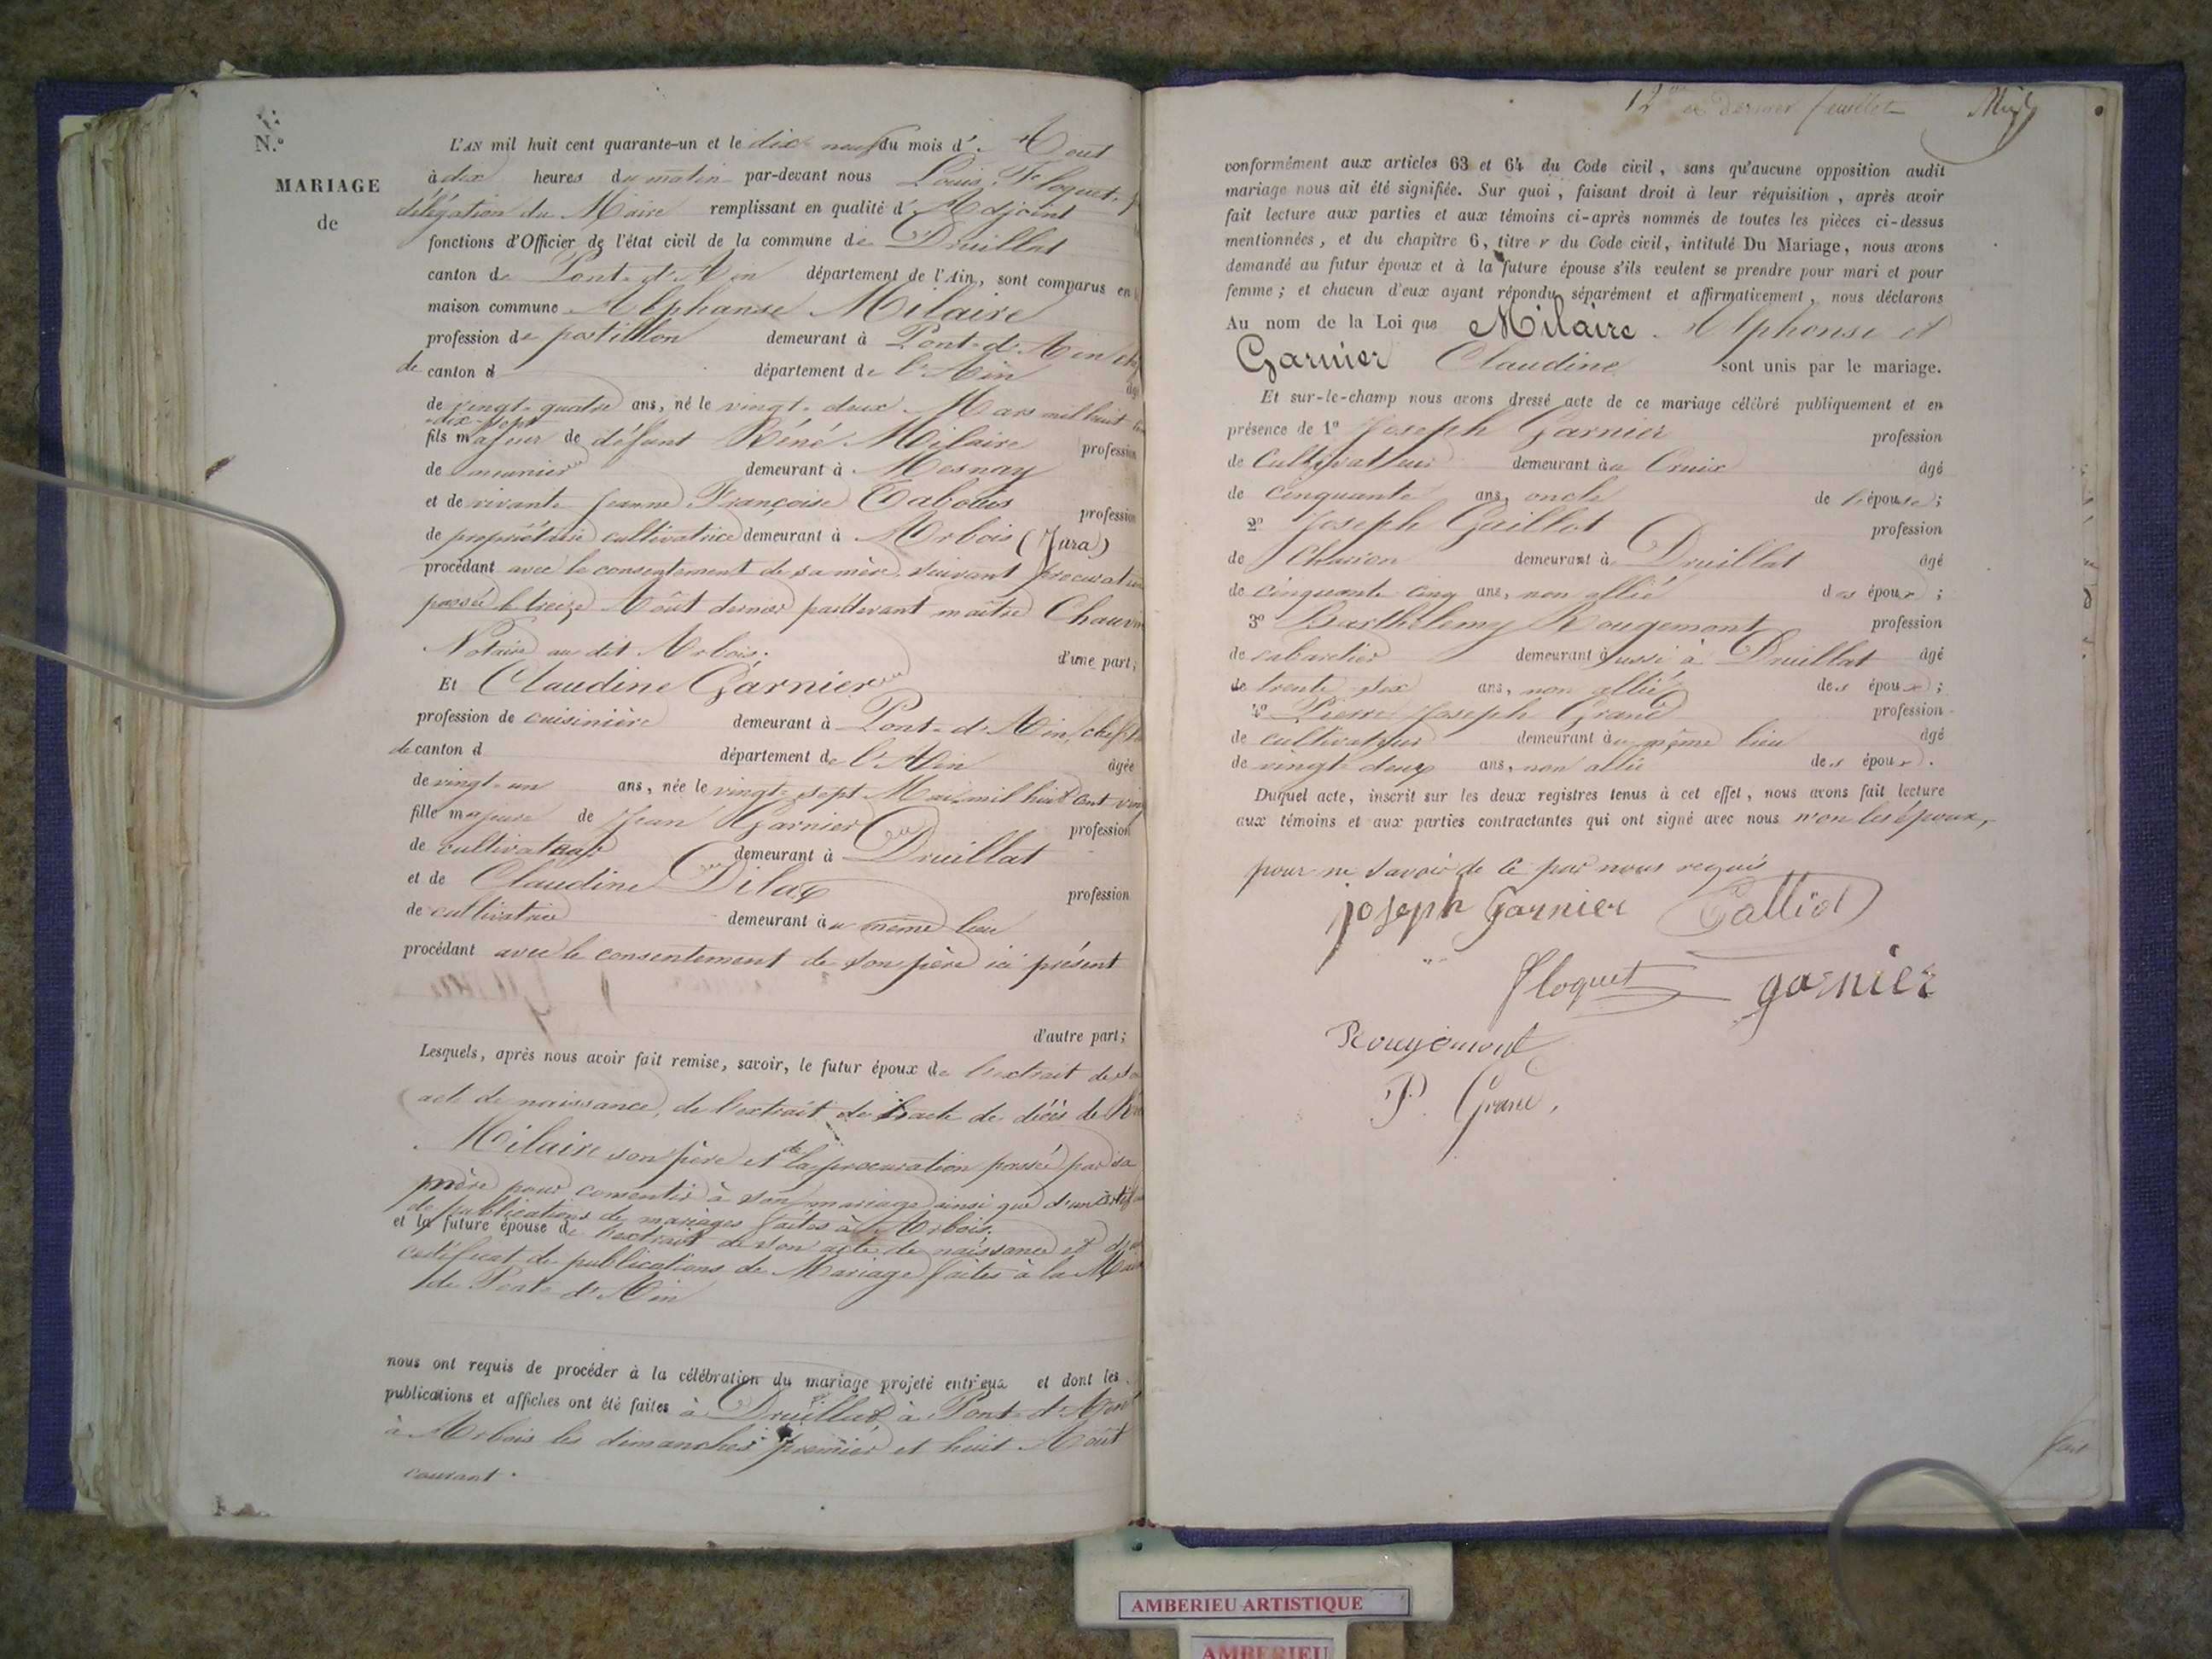 N.o
MARIAGE
de
L'AN mil huit cent quarante-un et le dix neuf du mois d' Aout
à dix heures du matin par-devant nous Louis Floquet,
délégation du Maire remplissant en qualité d'Adjoint
fonctions d'Officier de l'état civil de la commune de Druillat
canton de Pont-d'Ain département de l'Ain, sont comparus en
maison commune Alphonse Milaire
profession de postillon demeurant à Pont-d'Ain
de canton d département de l'Ain
âgé
de vingt-quatre ans, né le vingt-deux Mars mil huit
dix-sept
fils majeur de défunt Réné Milaire profession
de meunier demeurant à Mesnay
et de vivante Jeanne Françoise Tabouis profession
de propriétaire cultivatrice demeurant à Arbois (Jura)
procédant avec le consentement de sa mère, suivant procuration
passée le treize Aôut dernier pardevant maître
Notaire au dit Arbois; d'une part;
Et Claudine Garnier
profession de cuisinière demeurant à Pont-d'Ain, chef
de canton d département de l'Ain
âgée
de vingt-un ans, née le vingt-sept Mai mil huit cent
fille majeure de Jean Garnier profession
de cultivateur demeurant à Druillat
et de Claudine Dilas profession
de cultivatrice demeurant au même lieu
procédant avec le consentement de son père ici présent
d'autre part;
Lesquels, après nous avoir fait remise, savoir, le futur époux de l'extrait de
acte de naissance, de l'extrait de l'acte de décès de
Milaire son père et de la procuration passée par sa
mère pour consentir à son mariage ainsi que d'un
de publications de mariages faites à Arbois,
et la future épouse de l'extrait de son acte de naissance et
certificat de publications de Mariage faites à la
de Pont-d'Ain
nous ont requis de procéder à la célébration du mariage projeté entr'eux et dont les
publications et affiches ont été faites à Druillat, à Pont-d'Ain
à Arbois les dimanches premier et huit Aôut
courant.
12me et dernier feuillet
conformément aux articles 63 et 64 du Code civil, sans qu'aucune opposition audit
mariage nous ait été signifiée. Sur quoi, faisant droit à leur réquisition, après avoir
fait lecture aux parties et aux témoins ci-après nommés de toutes les pièces ci-dessus
mentionnées, et du chapitre 6, titre v du Code civil, intitulé Du Mariage, nous avons
demandé au futur époux et à la future épouse s'ils veulent se prendre pour mari et pour
femme; et chacun d'eux ayant répondu séparément et affirmativement, nous déclarons
Au nom de la Loi que Milaire Alphonse et
Garnier Claudine sont unis par le mariage.
Et sur-le-champ nous avons dressé acte de ce mariage célébré publiquement et en
présence de 1º Joseph Garnier profession
de Cultivateur demeurant âgé
de cinquante ans, oncle de l'épouse;
2º Joseph Gaillot profession
de Charron demeurant à Druillat âgé
de cinquante cinq ans, non allié des époux;
3º Barthélemy Rougemont profession
de cabaretier demeurant aussi à Druillat âgé
de trente six ans, non allié des époux;
4º Pierre Joseph Grand profession
de cultivateur demeurant au même lieu âgé
de vingt deux ans, non allié des époux.
Duquel acte, inscrit sur les deux registres tenus à cet effet, nous avons fait lecture
aux témoins et aux parties contractantes qui ont signé avec nous non les époux,
pour ne savoir de ce par nous requis
joseph garnier Galliot
floquet garnier
Rougemont
P. Grand,
AMBERIEU ARTISTIQUE
AMBERIEU